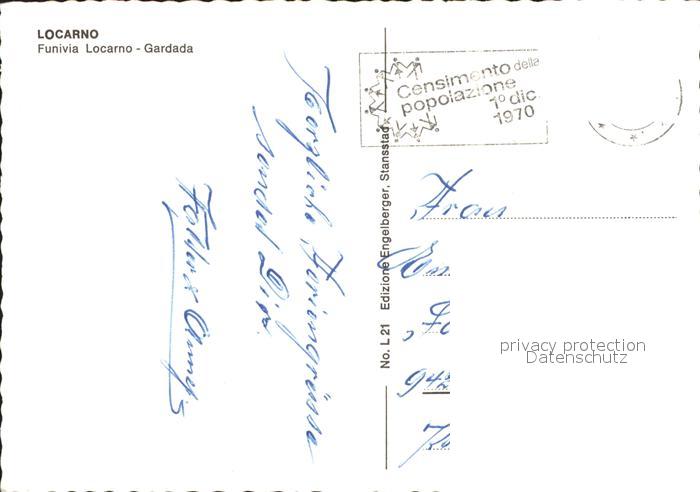 LOCARNO
Funivia Locarno - Gardada
Censimento della
popolazione
1º dic.
1970
Herzliche Feriengrüsse
sendet Dir
No. L 21 Edizione Engelberger, Stansstad
Frau
privacy protection
Datenschutz